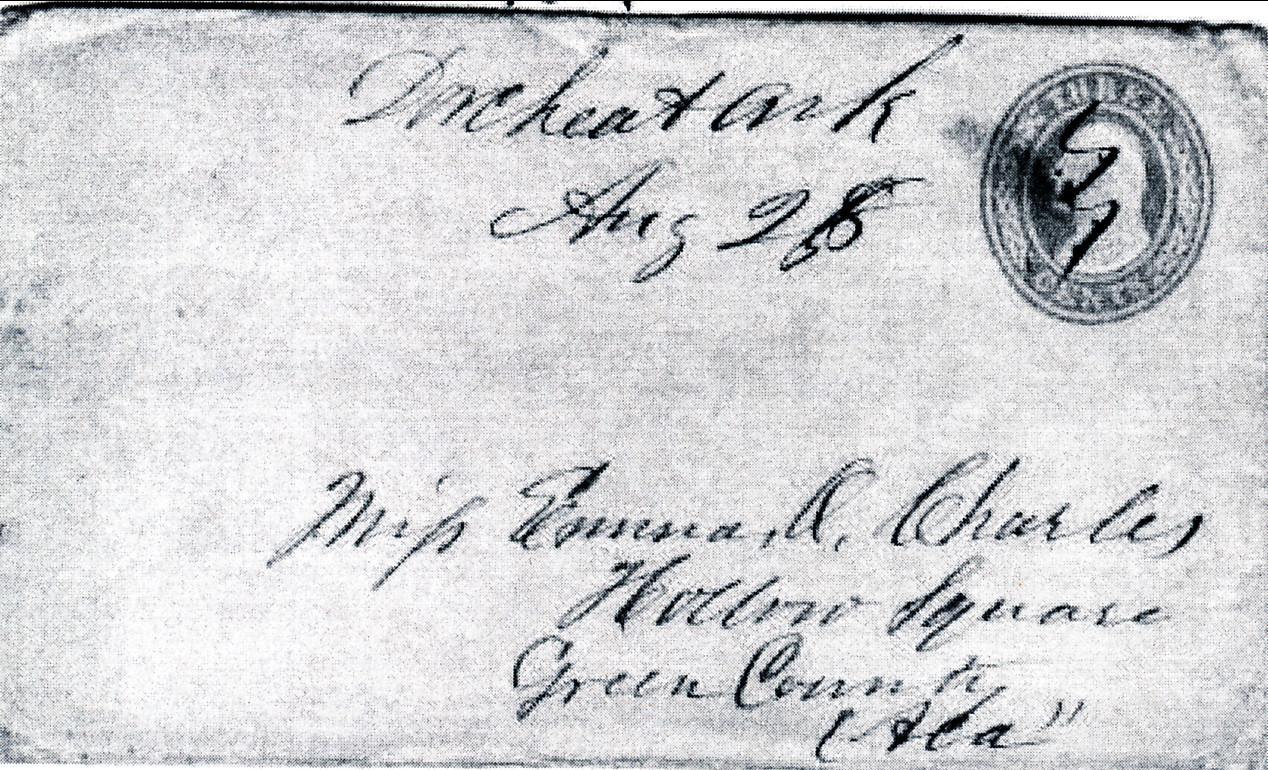 Dorcheat Ark
Aug 28
Miss Emma, A. Charles
Hollow Square
Green County
Ala"